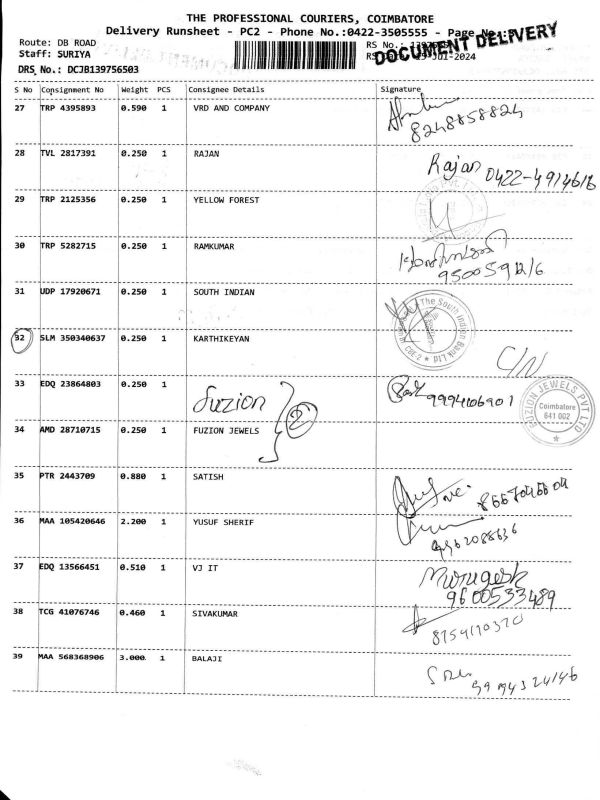 THE PROFESSIONAL COURIERS, COIMBATORE
Delivery Runsheet - PC2 - Phone No.:0422-3505555 - Page
DOCUMENT DELIVERY
Route: DB ROAD
RS No.:
Staff: SURIYA
DRS No.: DCJB139756503
S No Consignment No Weight PCS Consignee Details Signature
27 TRP 4395893 0.590 1 VRD AND COMPANY
8248858824
28 TVL 2817391 0.250 1 RAJAN Rajan 0422-4914616
29 TRP 2125356 0.250 1 YELLOW FOREST
30 TRP 5282715 0.250 1 RAMKUMAR
31 UDP 17920671 0.250 1 SOUTH INDIAN
The South Indian Bank Ltd
32 SLM 350340637 0.250 1 KARTHIKEYAN C/N
33 EDQ 23864803 0.250 1 Fuzion 2
FUZION JEWELS PVT LTD
Coimbatore
641 002
34 AMD 28710715 0.250 1 FUZION JEWELS
35 PTR 2443709 0.880 1 SATISH
36 MAA 105420646 2.200 1 YUSUF SHERIF
37 EDQ 13566451 0.510 1 VJ IT Murugesh
9600533489
38 TCG 41076746 0.460 1 SIVAKUMAR
39 MAA 568368906 3.000 1 BALAJI